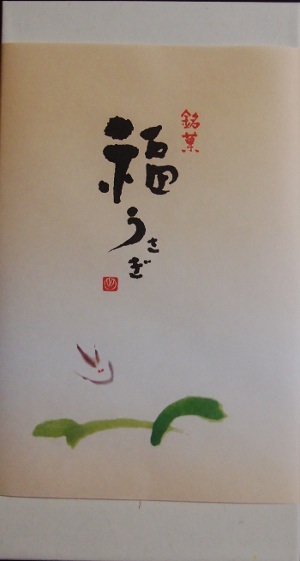 銘菓
福うさぎ